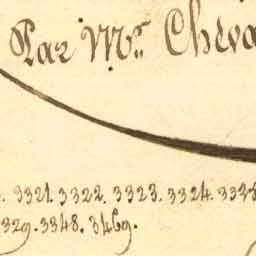 Par Mrs. Cheva
3321. 3322. 3323. 3324. 3325
329. 3348. 3469.